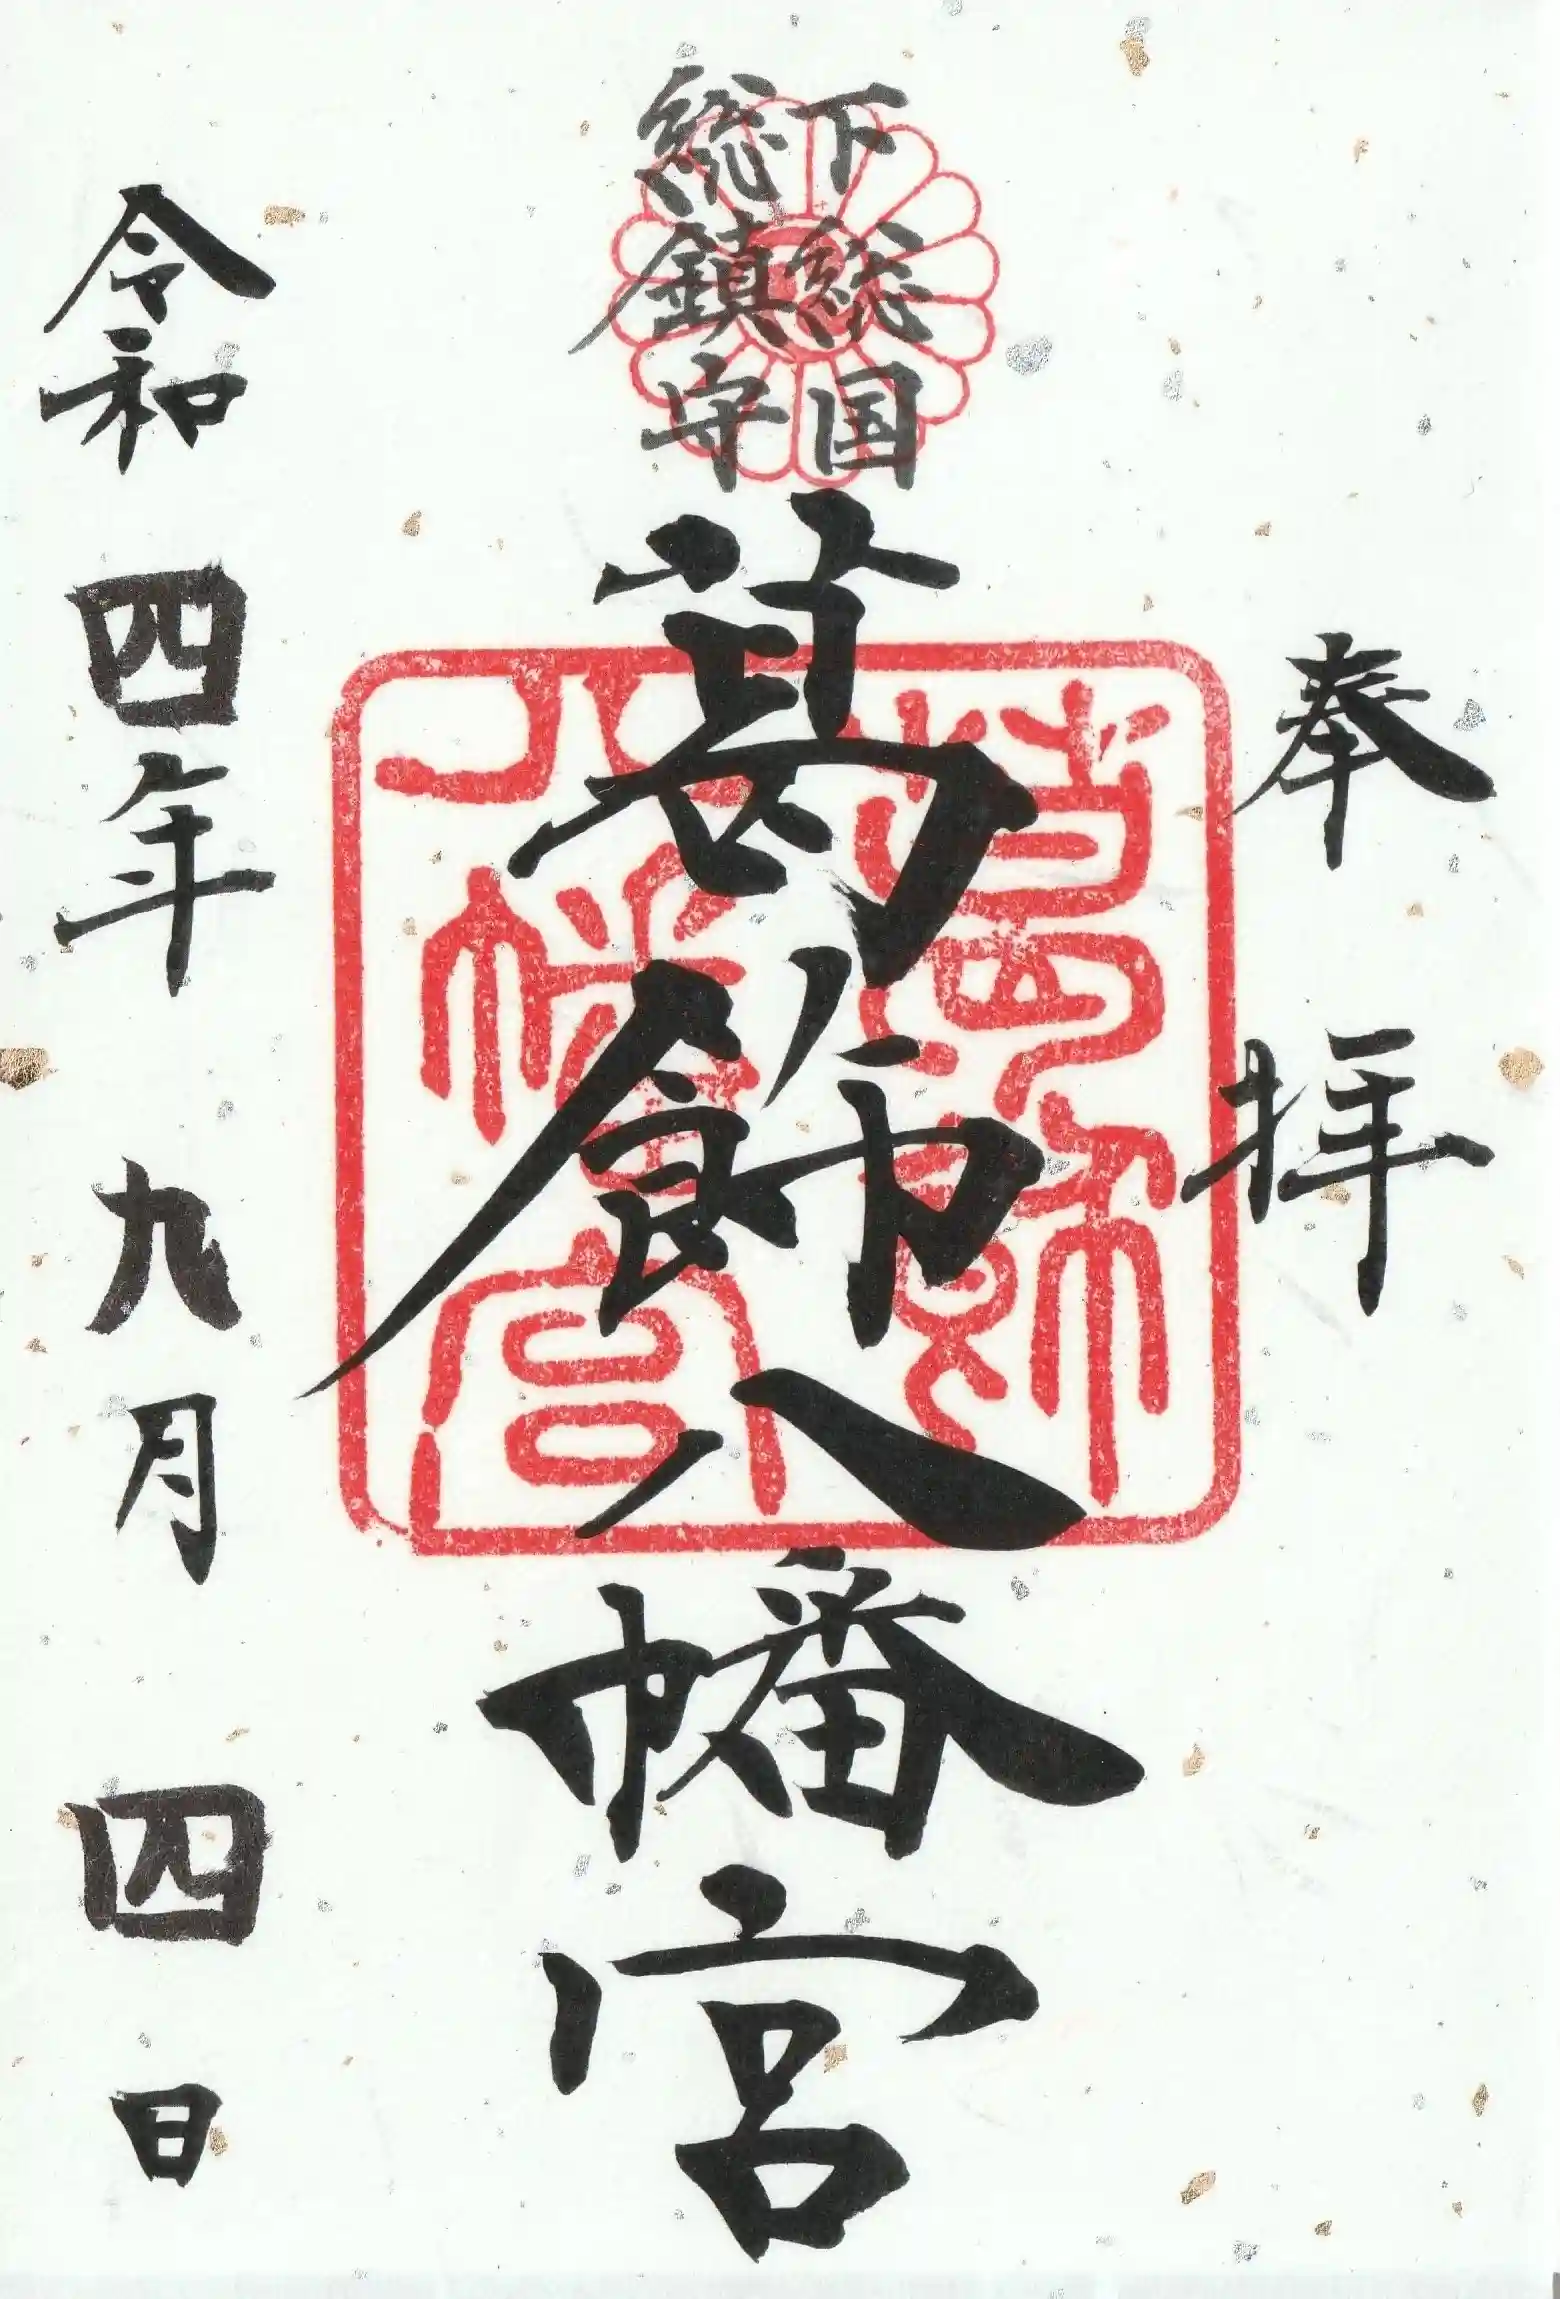 奉拝
下総国
総鎮守
葛飾八幡宮
葛飾
八幡宮
令和四年九月四日